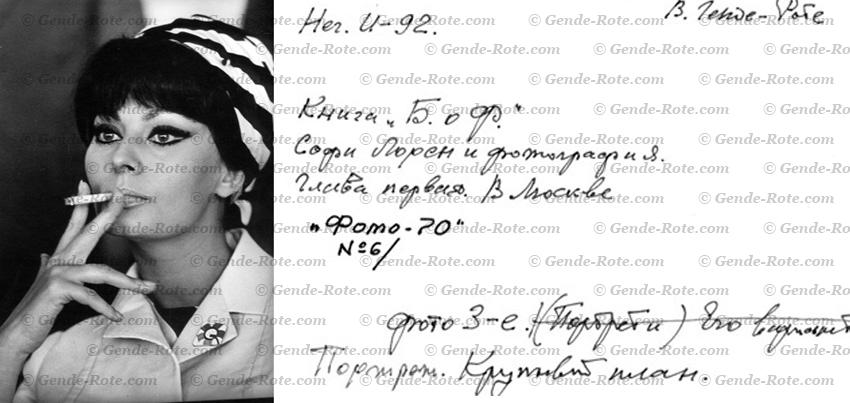 Нег. И-92.
В. Генде-Роте
Книга „Б. о Ф.“
Софи Лорен и фотография.
Глава первая. В Москве
„Фото-70“.
№6/
фото 3-е. (Портреты) Его вариант
Портрет. Крупный план.
© Gende-Rote.com